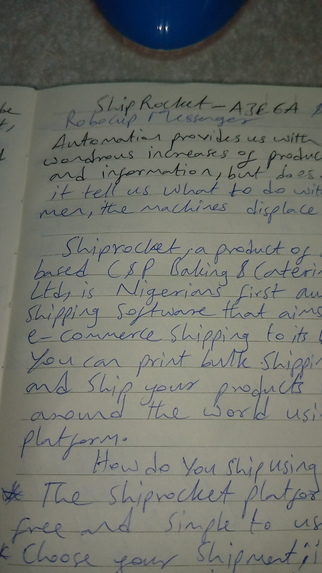 be
ShipRocket - A3E6A
Robocup Messenger
Automation provides us with
wondrous increases of produc
and information, but does
it tell us what to do with
men, the machines displace
Shiprocket, a product of
based C&P Baking & Caterin
Ltd, is Nigerians first au
shipping software that aims
e-commerce shipping to its
You can print bulk shippin
and ship your products
around the world usi
platform.
How do you ship using
* The shiprocket platfor
free and simple to us
Choose your shipment